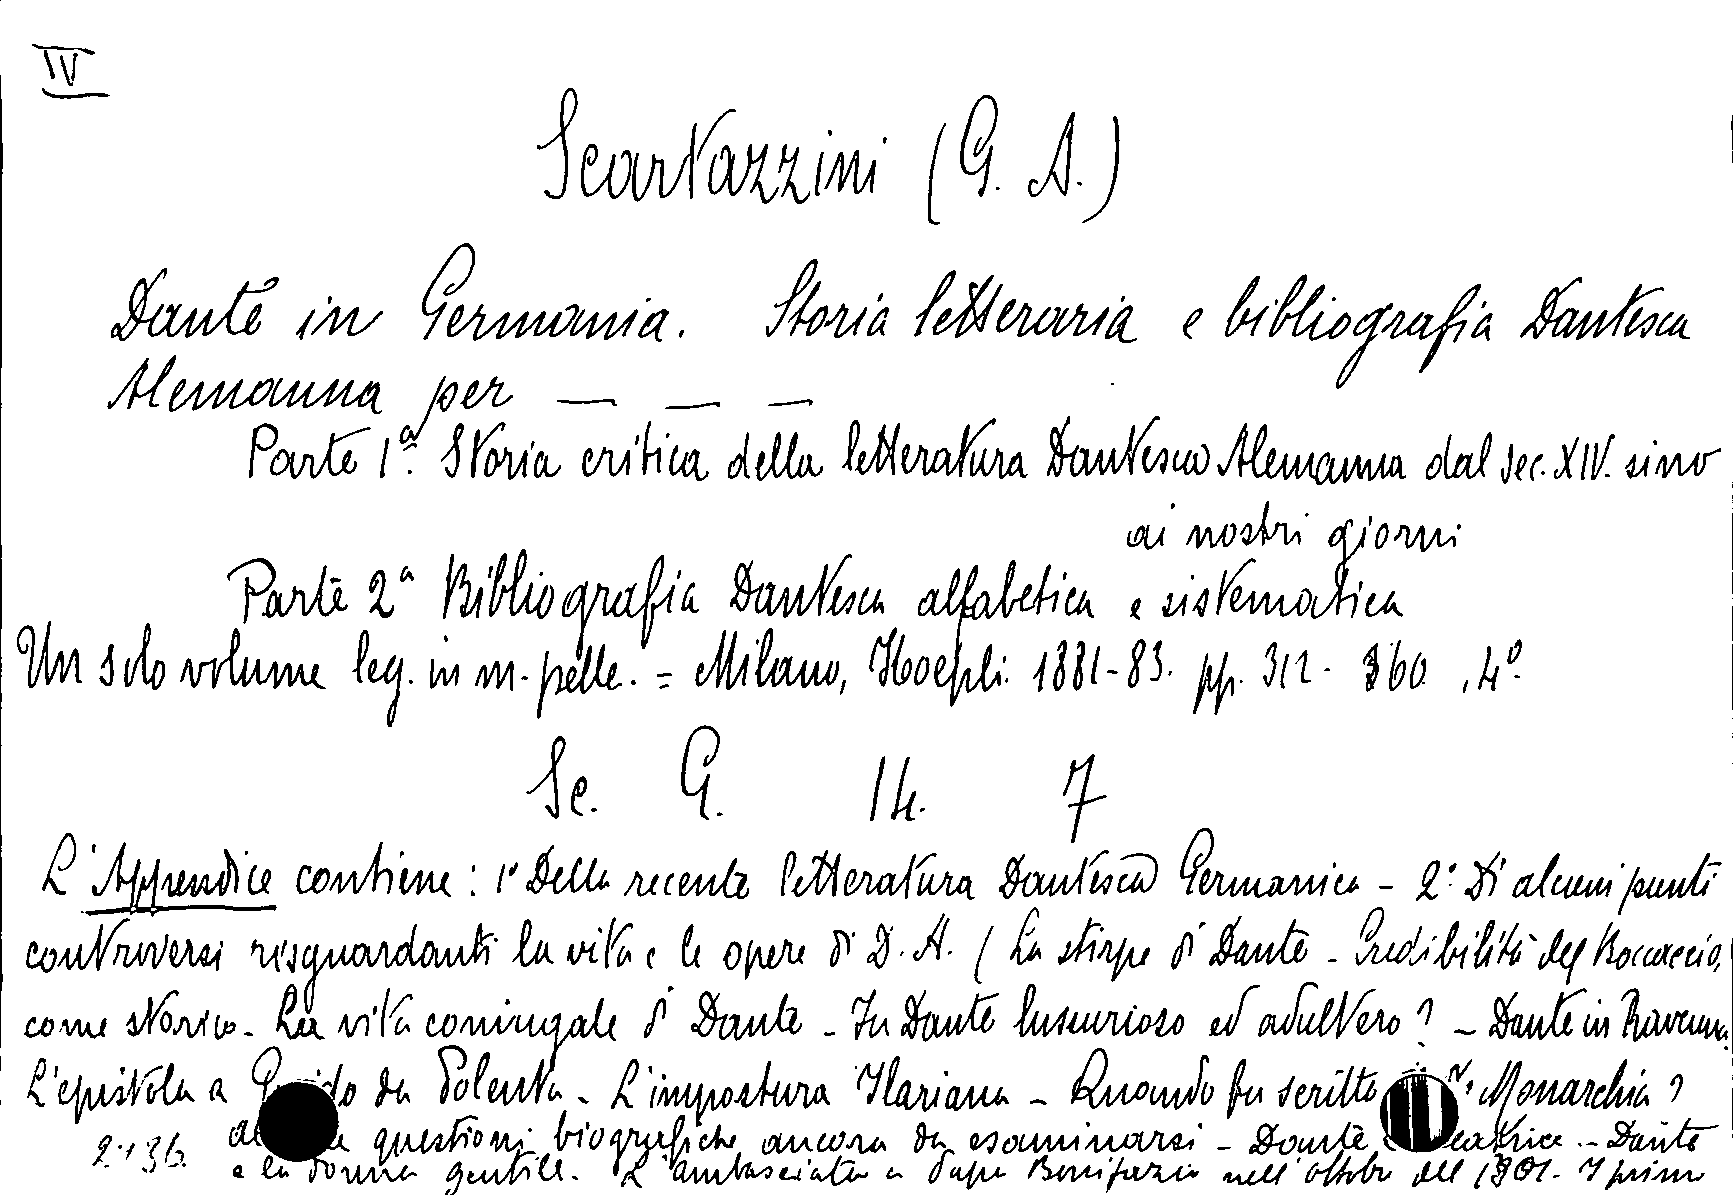 IV
Scartazzini (G. A.)
Dante in Germania. Storia letteraria e bibliografia Dantesca
Alemanna per — — —
Parte 1ª. Storia critica della letteratura Dantesca Alemanna dal sec. XIV. sino
ai nostri giorni
Parte 2ª Bibliografia Dantesca alfabetica e sistematica
Un solo volume leg. in m. pelle. = Milano, Hoepli. 1881-83. pp. 312 - 360 , 4º.
Sc. G. 14. 7
L'Appendice contiene: 1º Della recente letteratura Dantesca Germanica - 2º. Di alcuni punti
controversi risguardanti la vita e le opere di D. A. ( La stirpe di Dante - Credibilità del Boccaccio,
come storico - La vita coniugale di Dante - Fu Dante lussurioso ed adultero? - Dante in Ravenna.
L'epistola a Guido da Polenta - L'impostura Ilariana - Quando fu scritto Monarchia?
questioni biografiche ancora da esaminarsi - Dante Beatrice - Dante
2.136. e la donna gentile. L'ambasciata a Papa Bonifazio nell'ottobre del 1301. I primi